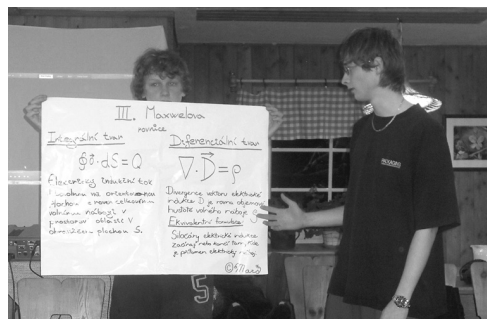 III. Maxwelova
rovnice
Integrální tvar
∮D·dS=Q
Elektrický indukční tok
plochou je roven celkovému
volnému náboji v
prostorové oblasti V
ohraničené plochou S.
Diferenciální tvar
∇·D⃗=ρ
Divergence vektoru elektrické
indukce D je rovna objemové
hustotě volného náboje ρ
Ekvivalentní formulace
Siločáry elektrické indukce
začínají nebo končí tam, kde
je přítomen elektrický náboj
5